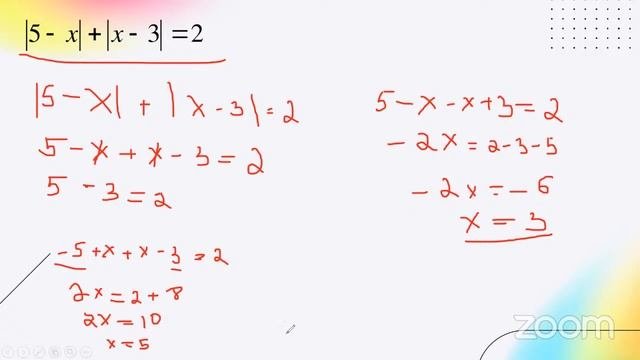 |5 - x| + |x - 3| = 2
|5 - x| + |x - 3| = 2
5 - x + x - 3 = 2
5 - 3 = 2
-5 + x + x - 3 = 2
2x = 2 + 8
2x = 10
x = 5
5 - x - x + 3 = 2
- 2x = 2 - 3 - 5
- 2x = - 6
x = 3
zoom